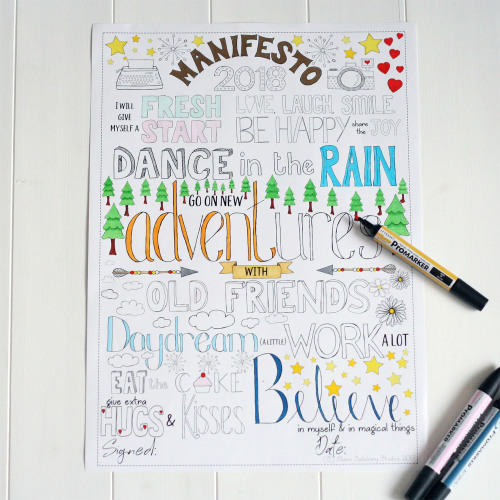 MANIFESTO
2018
I WILL GIVE MYSELF A FRESH START
LOVE, LAUGH, SMILE
BE HAPPY share the JOY
DANCE in the RAIN
GO ON NEW
adventures
WITH
OLD FRIENDS
Daydream (A LITTLE) WORK A LOT
EAT the CAKE
give extra HUGS & Kisses
Believe
in myself & in magical things
Signed: Date:
PROMARKER
PROMARKER
PROMARKER